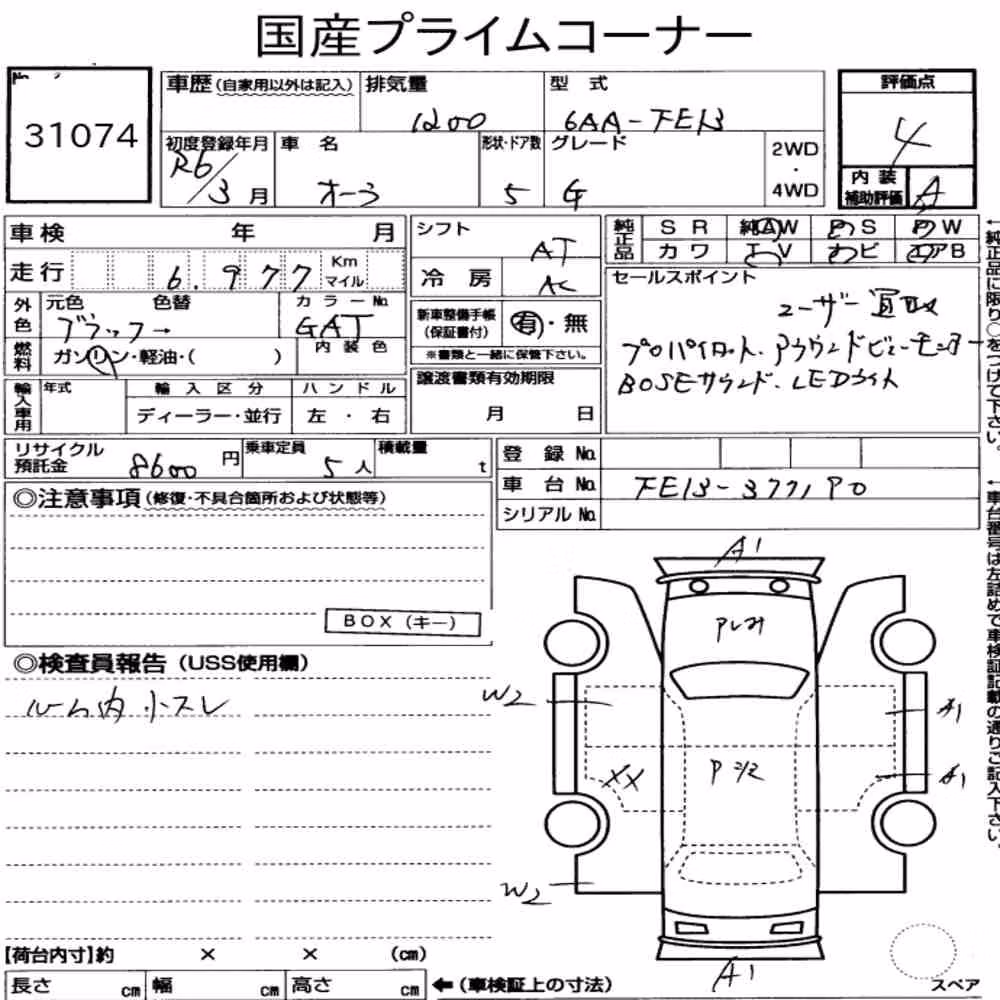 国産プライムコーナー
No.
31074
車歴 (自家用以外は記入) 排気量 型式
1200 6AA-FE13
初度登録年月 車名 形状・ドア数 グレード 2WD・4WD
R6/3月 オーラ 5 G
評価点
4
内装補助評価 A
車検 年 月
走行 6.977 Km マイル
シフト AT
冷房 AC
純正品 SR 純AW PS PW
カワ TV ナビ エアB
外色 元色 色替 カラーNo.
ブラック→ GAT
燃料 ガソリン・軽油・( ) 内装色
新車整備手帳(保証書付) 有・無
※書類と一緒に保管下さい。
セールスポイント
ユーザー買取
プロパイロット.アラウンドビューモニター
BOSEサウンド.LEDライト
輸入車用 年式 輸入区分 ハンドル
ディーラー・並行 左・右
譲渡書類有効期限
月 日
リサイクル預託金 8600円 乗車定員 5人 積載量 t
登録No.
車台No. FE13-377190
シリアルNo.
◎注意事項(修復・不具合箇所および状態等)
BOX(キー)
◎検査員報告(USS使用欄)
ルーム内 小スレ
A1
Pレみ
W2
A1
XX
P2/2
A1
W2
A1
スペア
【荷台内寸】約 × × (cm)
長さ cm 幅 cm 高さ cm ←(車検証上の寸法)
←純正品に限り○をつけて下さい。
←車台番号は左詰めで車検証記載の通りご記入下さい。